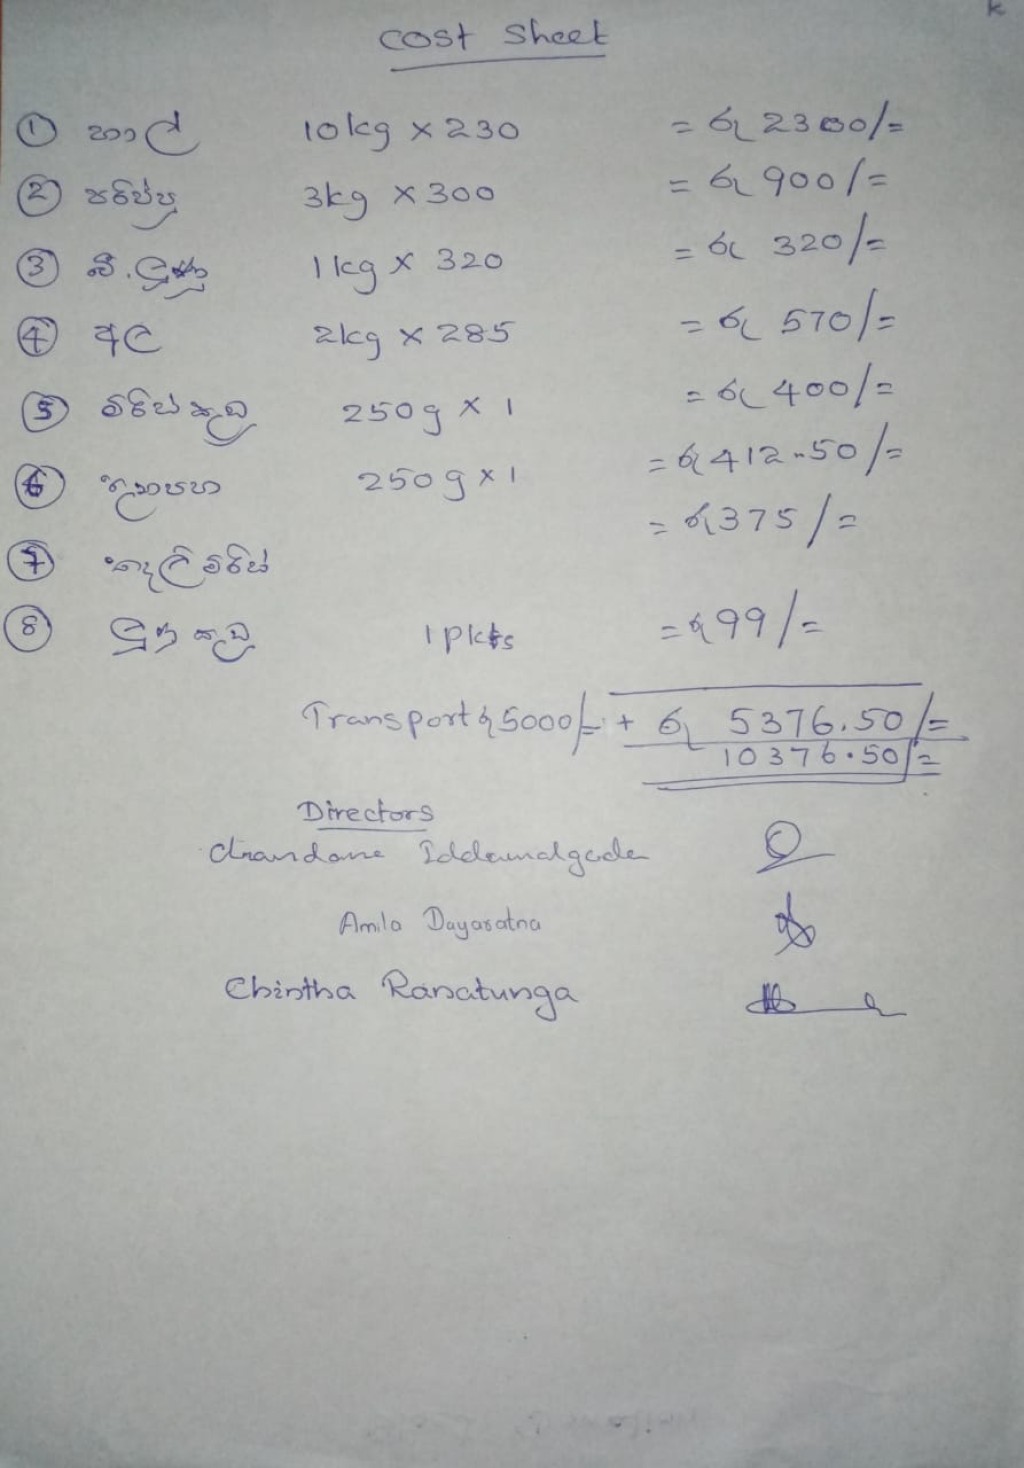 Cost Sheet
① හාල් 10kg × 230 = රු 2300/=
② පරිප්පු 3kg × 300 = රු 900/=
③ බී. ලූණු 1kg × 320 = රු 320/=
④ අල 2kg × 285 = රු 570/=
⑤ මිරිස් කුඩු 250g × 1 = රු 400/=
⑥ තුනපහ 250g × 1 = රු 412.50/=
⑦ කෑලි මිරිස් = රු 375/=
⑧ ලුණු කුඩු 1 pkts = රු 99/=
Transport රු 5000/= + රු 5376.50/=
10376.50/=
Directors
Chandana Iddamalgoda
Amila Dayaratna
Chintha Ranatunga